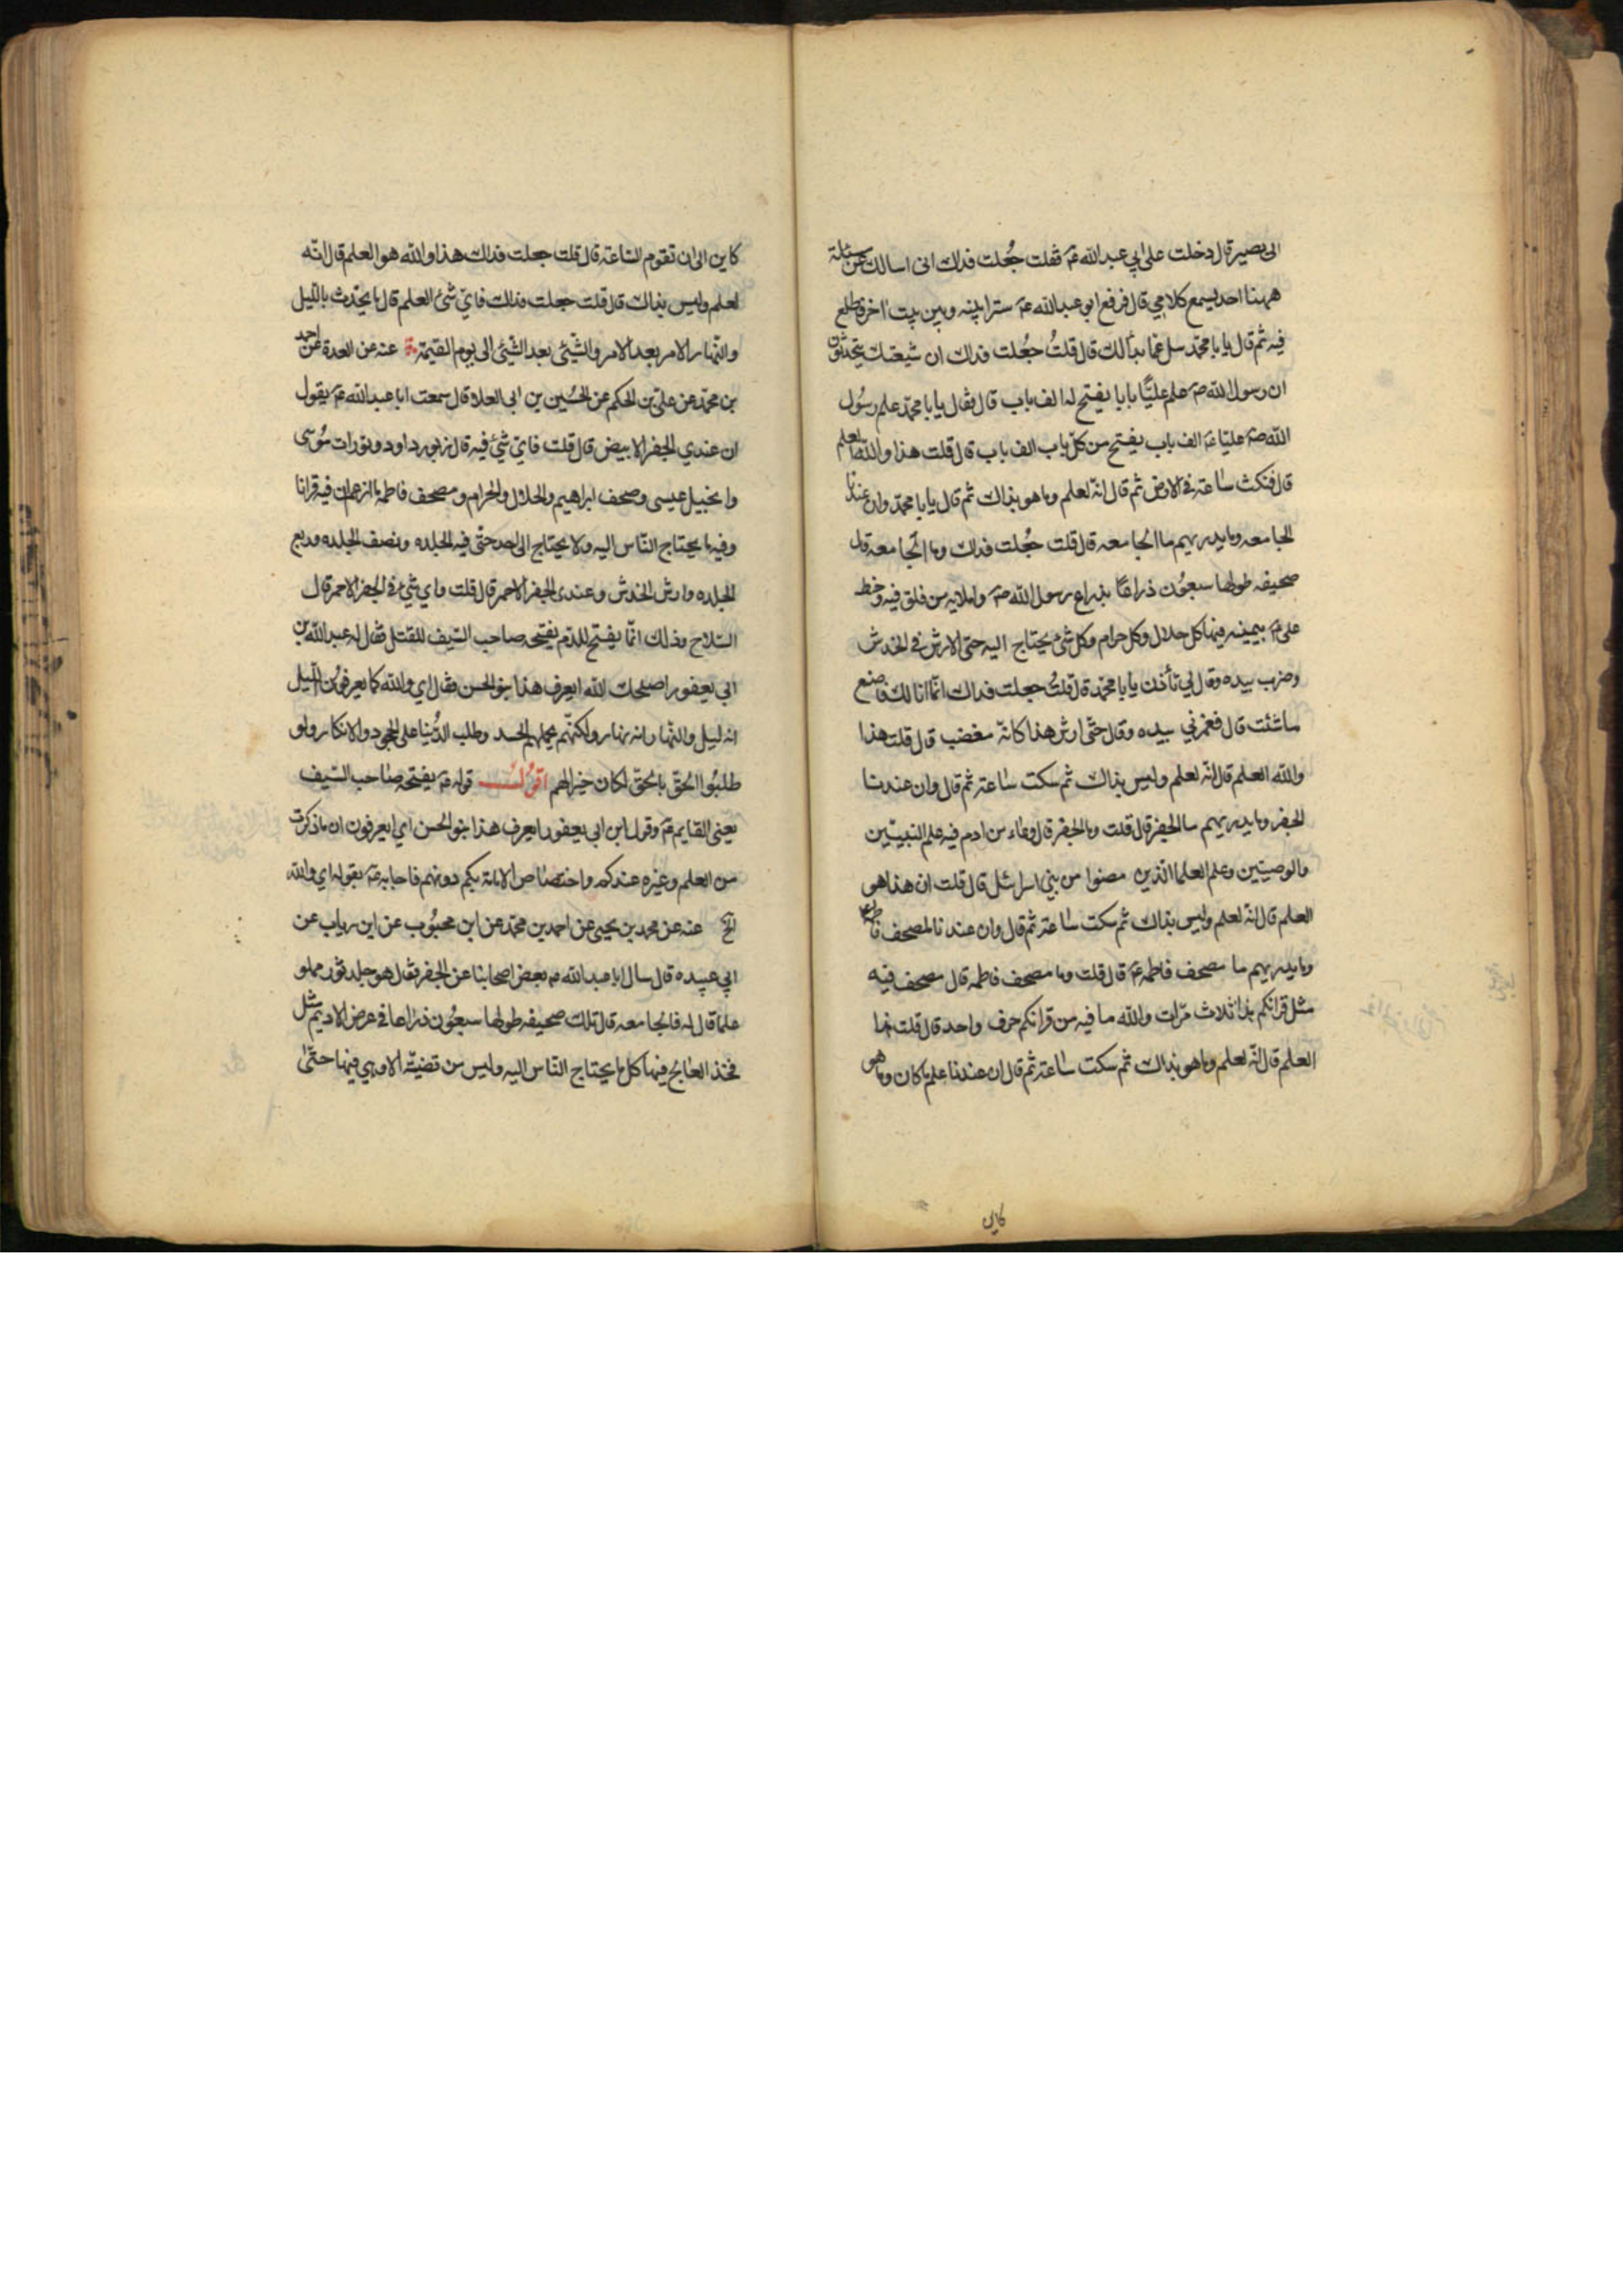 ابى بصير قال دخلت على ابي عبد الله عم فقلت جُعلت فداك انى اسالك عن مسئلة
ههنا احد يسمع كلامي قال فرفع ابو عبد الله عم سترا بينه وبين بيت اخر فاطلع
فيه ثم قال يا با محمّد سل عما بدألك قال قلتُ جُعلت فداك ان شيعتك يتحدثون
ان رسول الله صم علم عليًّا بابا يفتح له الف باب قال فقال يا با محمّد علم رسُول
الله صم عليّا عم الف باب يفتح من كلّ باب الف باب قال قلت هذا والله العلم
قال فنكث ساعة فى الارض ثم قال انّه لعلم وما هو بذاك ثم قال يا با محمّد وان عندنا
الجامعه وما يدريهم ما الجامعه قال قلت جُعلت فداك وما الجامعه قال
صحيفه طولها سبعُون ذراعًا بذراع رسول الله صم واملائه من فلق فيه وخط
على عم بيمينه فيها كل حلال وكل حرام وكل شئ يحتاج اليه حتى الارش فى الخدش
وضرب بيده وقال لي تأذن يا با محمّد قال قلتُ جعلت فداك انّما انا لك فاصنع
ما شئت قال فغمزني بيده وقال حتّى ارش هذا كانّه مغضب قال قلت هذا
والله العلم قال انّه لعلم وليس بذاك ثم سكت ساعة ثم قال وان عندنا
الجفر وما يدريهم ما الجفر قال قلت وما الجفر قال وعاء من ادم فيه علم النبيّين
والوصيّين وعلم العلما الذين مضوا من بني اسرائيل قال قلت ان هذا هو
العلم قال انّه لعلم وليس بذاك ثم سكت ساعة ثم قال وان عندنا لمصحف فاطمه
وما يدريهم ما مصحف فاطمه عم قال قلت وما مصحف فاطمه قال مصحف فيه
مثل قرانكم هذا ثلاث مرّات والله ما فيه من قرانكم حرف واحد قال قلت هذا
العلم قال انّه لعلم وما هو بذاك ثم سكت ساعة ثم قال ان عندنا علم ما كان وما هو
كاين
كاين الى ان تقوم السّاعة قال قلت جعلت فداك هذا والله هو العلم قال انّه
لعلم وليس بذاك قال قلت جعلت فداك فايّ شئ العلم قال ما يحدث بالليل
والنّهار الامر بعد الامر والشّئ بعد الشّئ الى يوم القيمة عنه عن العدة عن احمد
بن محمّد عن علىّ بن الحكم عن الحُسين بن ابى العلا قال سمعت ابا عبد الله عم يقول
ان عندي الجفر الابيض قال قلت فايّ شئ فيه قال زبور داود وتورات مُوسى
وانجيل عيسى وصحف ابراهيم والحلال والحرام ومصحف فاطمه ما ازعم ان فيه قرانا
وفيه ما يحتاج النّاس اليه ولا يحتاج الى احد حتّى فيه الجلده ونصف الجلده وربع
الجلده وارش الخدش وعندى الجفر الاحمر قال قلت واي شئ فى الجفر الاحمر قال
السّلاح وذلك انّما يفتح للدّم يفتحه صاحب السّيف للقتل فقال له عبد الله بن
ابي يعفور اصلحك الله ايعرف هذا بنو الحسن فقال اي والله كما يعرفون الليل
انه ليل والنّهار انه نهار ولكنّهم يحملهم الحسد وطلب الدُّنيا على الجحود والانكار ولو
طلبُوا الحقّ بالحقّ لكان خيرا لهم اقول قوله عم يفتحه صاحب السّيف
يعنى القايم عم وقول ابن ابي يعفور ايعرف هذا بنو الحسن اي ايعرفون ان ما ذكرت
من العلم وغيره عندكم واختصاص الامامة بكم دونهم فاجابه عم بقوله اي والله
الخ عنه عن محمد بن يحيى عن احمد بن محمّد عن ابن محبُوب عن ابن رياب عن
ابي عبيده قال سال ابا عبد الله عم بعض اصحابنا عن الجفر فقال هو جلد ثور مملو
علما قال له فالجامعه قال تلك صحيفه طولها سبعُون ذراعا فى عرض الاديم مثل
فخذ الفالج فيها كل ما يحتاج النّاس اليه وليس من قضيّة الا وهي فيها حتّى